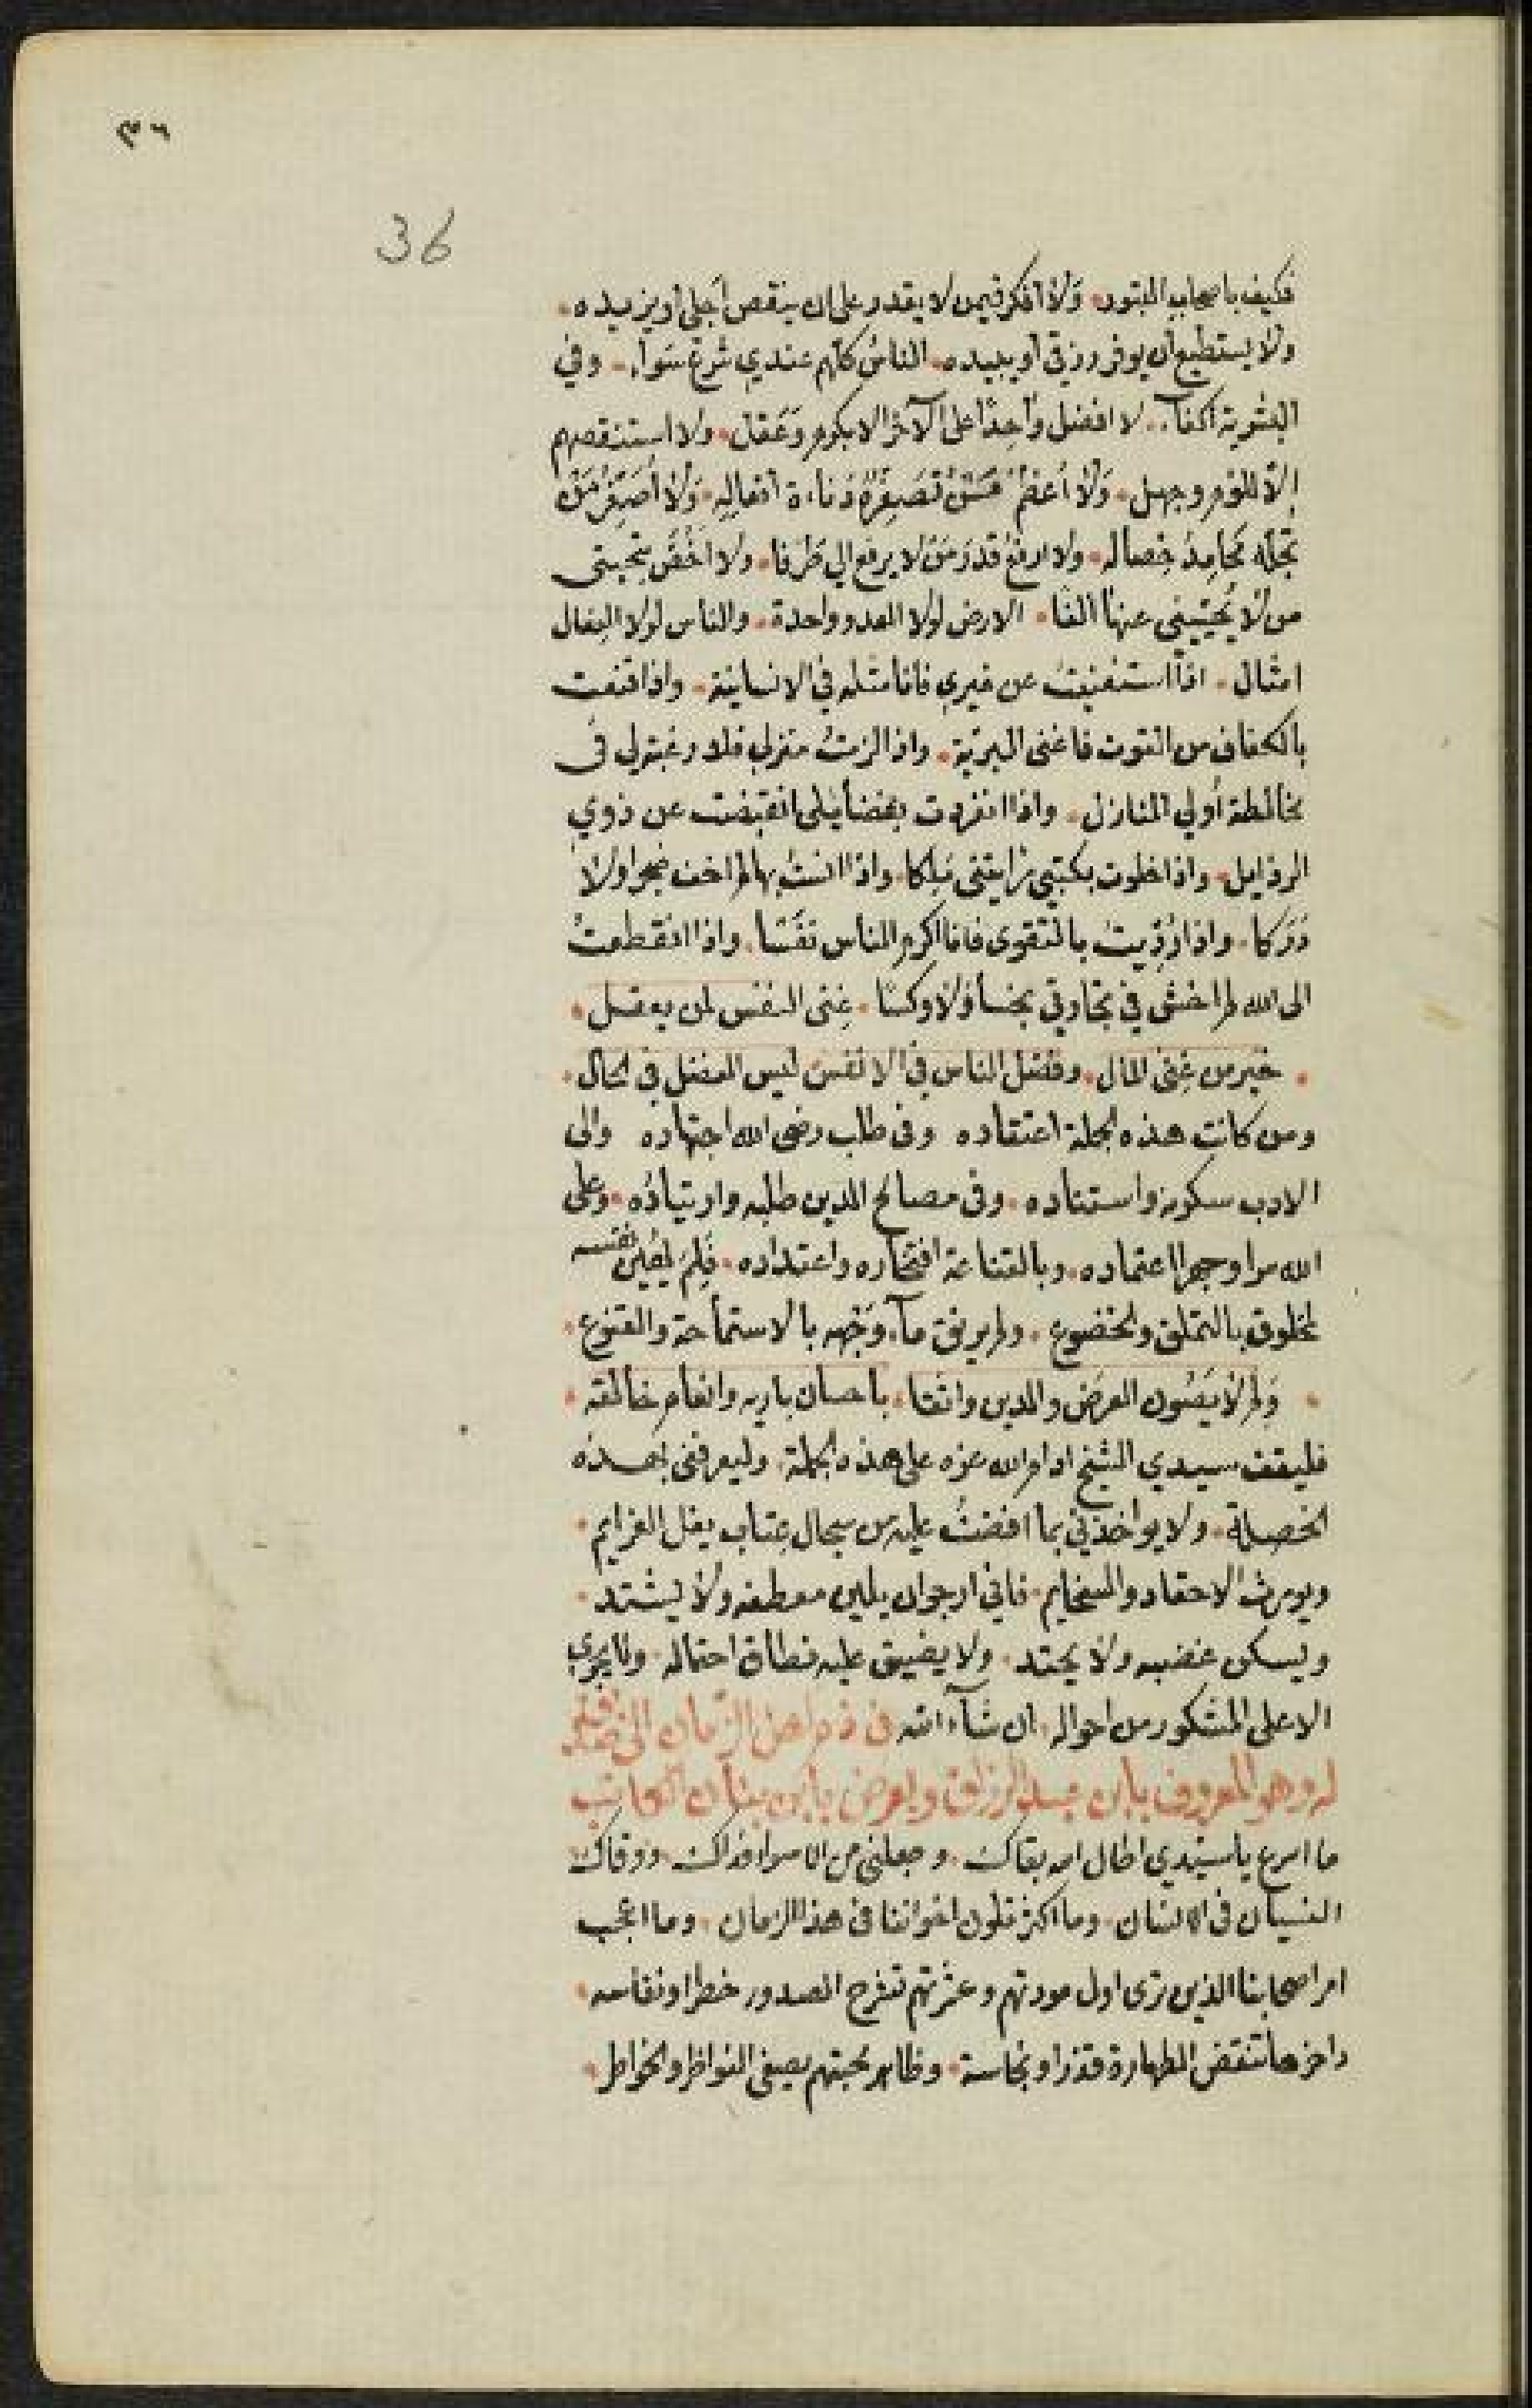 ٣٦
36
فكيف باصحاب البتور ولا افكر فيمن لا يقدر على ان ينقص اجلي او يزيده
ولا يستطيع ان يوفر رزقي او يبيده الناس كلهم عندي شرع سواء وفي
البشرية اكفاء لا افضل واحدا على الآخر الا بكرم وعقل ولا استنقصهم
إلا للؤم وجهل ولا أعظم من تصغره دناءة افعاله ولا أصغر من
تجله محامد خصاله ولا ارفع قدر من لا يرفع الي طرفا ولا اخص بتحيتي
من لا يحييني عنها الفا الارض لولا العدو واحدة والناس لولا الفعال
امثال اذا استغنيت عن غيري فانا مثله في الانسانية واذا قنعت
بالكفاف من القوت فاغنى البرية واذا لزمت منزلي فلا رغبة لي في
مخالطة أولي المنازل واذا انفردت بفضايلي انقبضت عن ذوي
الرذايل واذا خلوت بكتبي رايتني ملكا واذا انست بها لم اخف ضجرا ولا
دركا واذا رديت بالتقوى فانا اكرم الناس نفسا واذا انقطعت
الى الله لم اخش في تجارتي بخسا ولا وكسا غنى النفس لمن يعقل
خير من غنى المال وفضل الناس في الانفس ليس الفضل في الحال
ومن كانت هذه الجملة اعتقاده وفي طلب رضى الله اجتهاده والى
الادب سكونه واستناده وفي مصالح الدين طلبه وارتياده وعلى
الله عز وجل اعتماده وبالقناعة افتخاره واعتداده فلم يهين نفسه
لمخلوق بالتملق والخضوع ولم يريق ماء وجهه بالاستماحة والقنوع
ولم لا يصون العرض والدين واثقا باحسان باريه وانعام خالقه
فليقف سيدي الشيخ ادام الله عزه على هذه الجملة وليعرفني بهذه
الخصلة ولا يواخذني بما افضت عليه من سجال عتاب يفل العزايم
ويورث الاحقاد والسخايم فاني ارجو ان يلين معطفه ولا يشتد
ويسكن غضبه ولا يحتد ولا يضيق عليه نطاق احتماله ولا يجري
الا على المشكور من احواله ان شاء الله في ذم اهل الزمان الى صديق
له وهو المعروف بابن عبد الرزاق ويعرض بابن بنان الكاتب
ما اسرع يا سيدي اطال الله بقاك وجعلني من الاسواء فداك ووقاك
النسيان في الانسان وما اكثر تلون اخواننا في هذا الزمان وما اعجب
امر اصحابنا الذين ترى اول مودتهم وعشرتهم تفرح الصدور خطرا ونفاسه
واخرها تنقض الطهارة قذرا ونجاسة وظاهر محبتهم يصفي النواظر والخواطر